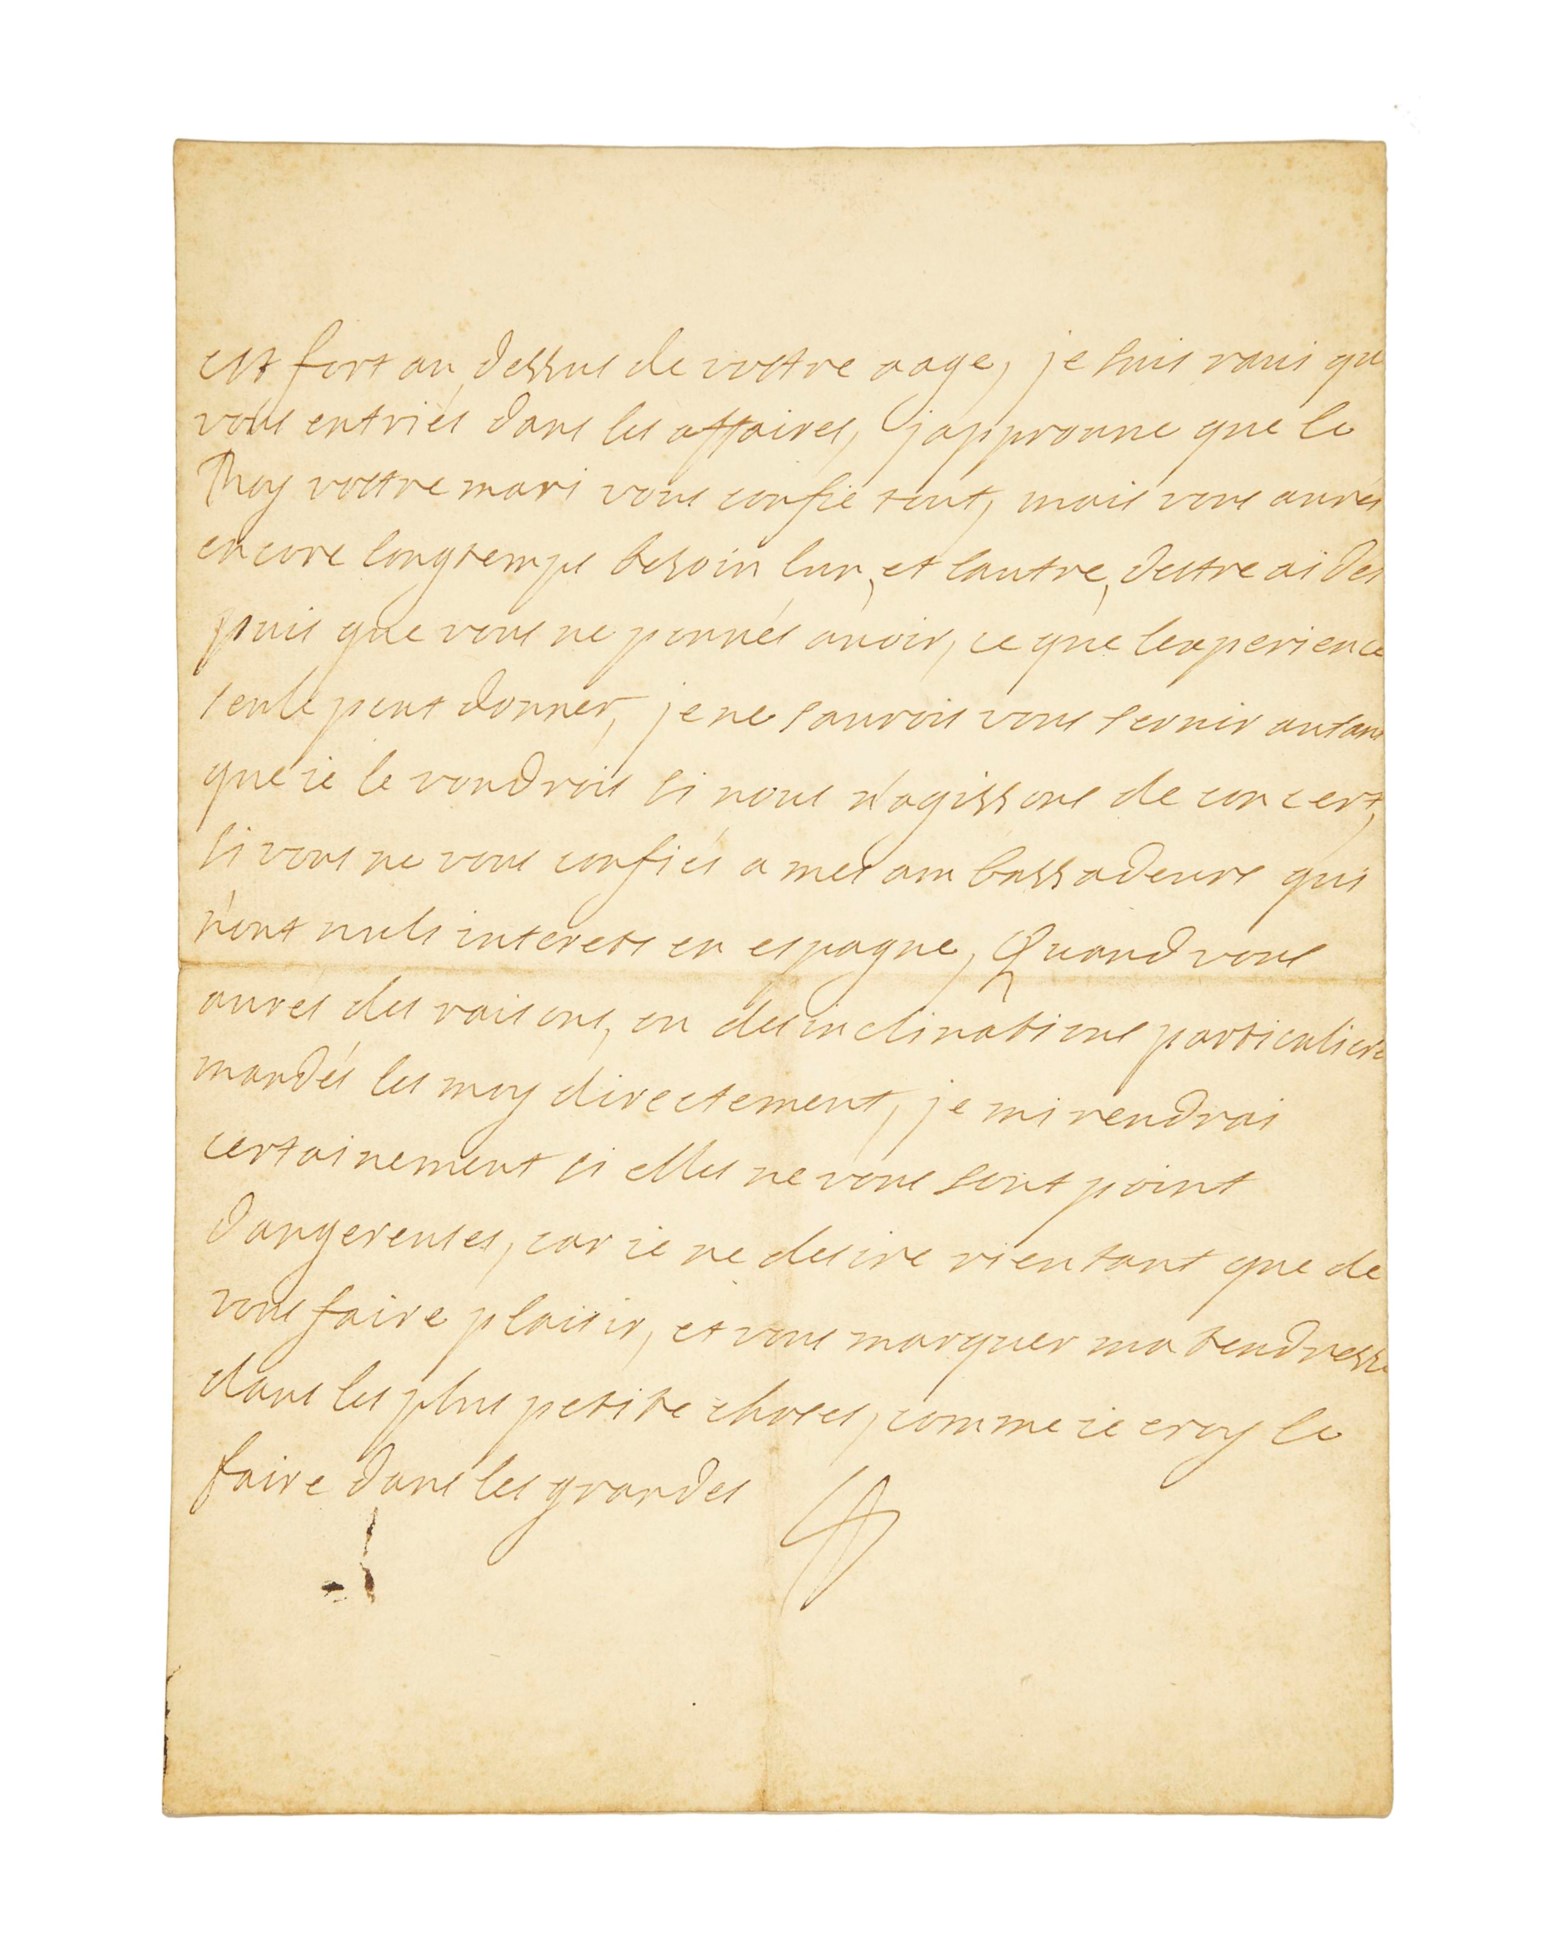 est fort au dessus de vostre aage, je suis raui qu
vous entriés dans les affaires, japprouue que le
Roy vostre mari vous confie tout, mais vous aurés
encore longtemps besoin lun, et lautre, destre aidés
puis que vous ne pouués auoir, ce que lexperience
seule peut donner, je ne saurois vous seruir autant
que ie le voudrois si nous n'agissons de concert,
si vous ne vous confiés a mes ambassadeurs qui
n'ont nuls interets en espagne, Quand vous
aurés des raisons, ou des inclinations particuliere
mandés les moy directement, je mi rendrai
certainement si elles ne vous sont point
dangereuses, car ie ne desire rien tant que de
vous faire plaisir, et vous marquer ma tendresse
dans les plus petite choses, comme ie croy le
faire dans les grandes